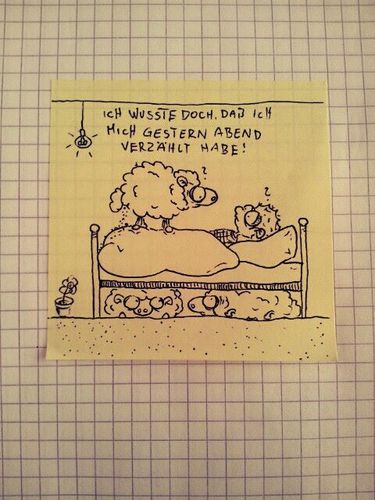 ICH WUSSTE DOCH, DAß ICH
MICH GESTERN ABEND
VERZÄHLT HABE!
?
?